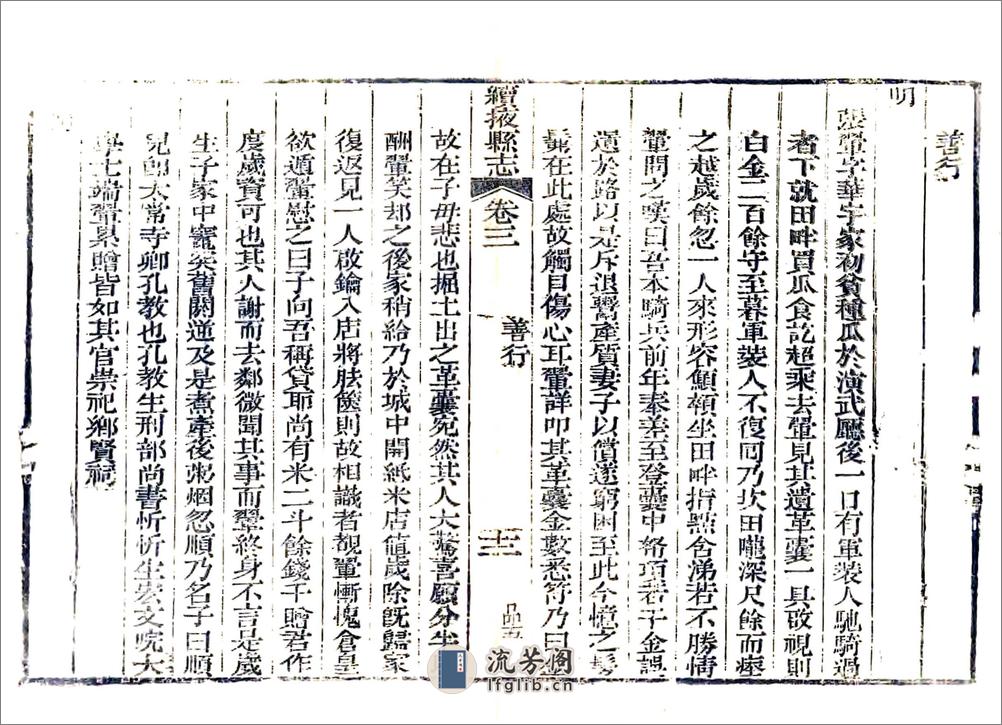 善行
明
張翬字華宇家初貧種瓜於演武廳後一日有軍裝人馳騎過
者下就田畔買瓜食訖超乘去翬見其遺革囊一具啟視則
白金二百餘守至暮軍裝人不復回乃坎田隴深尺餘而瘞
之越歲餘忽一人來形容顦顇坐田畔指點含涕若不勝情
翬問之嘆曰吾本騎兵前年奉差至登囊中帑項若干金誤
遺於路以是斥退鬻產質妻子以償遂窮困至此今憶之
在此處故觸目傷心耳翬詳叩其革囊金數悉符乃曰
故在子毋悲也掘土出之革囊宛然其人大驚喜願分半
酬翬笑却之後家稍給乃於城中開紙米店值歲除既歸家
復返見一人啟鑰入店將胠篋則故相識者覩翬慚愧倉皇
欲遁翬慰之曰子向吾稱貸耶尚有米二斗餘錢千贈君作
度歲資可也其人謝而去鄰微聞其事而翬終身不言是歲
生子家中竈突舊關逆及是煮產後粥烟忽順乃名子曰順
兒郎太常寺卿孔教也孔教生刑部尚書忻忻生宏文院大
學士端翬累贈皆如其官崇祀鄉賢祠
續掖縣志
卷三
善行
十三
流芳阁
lfglib.cn